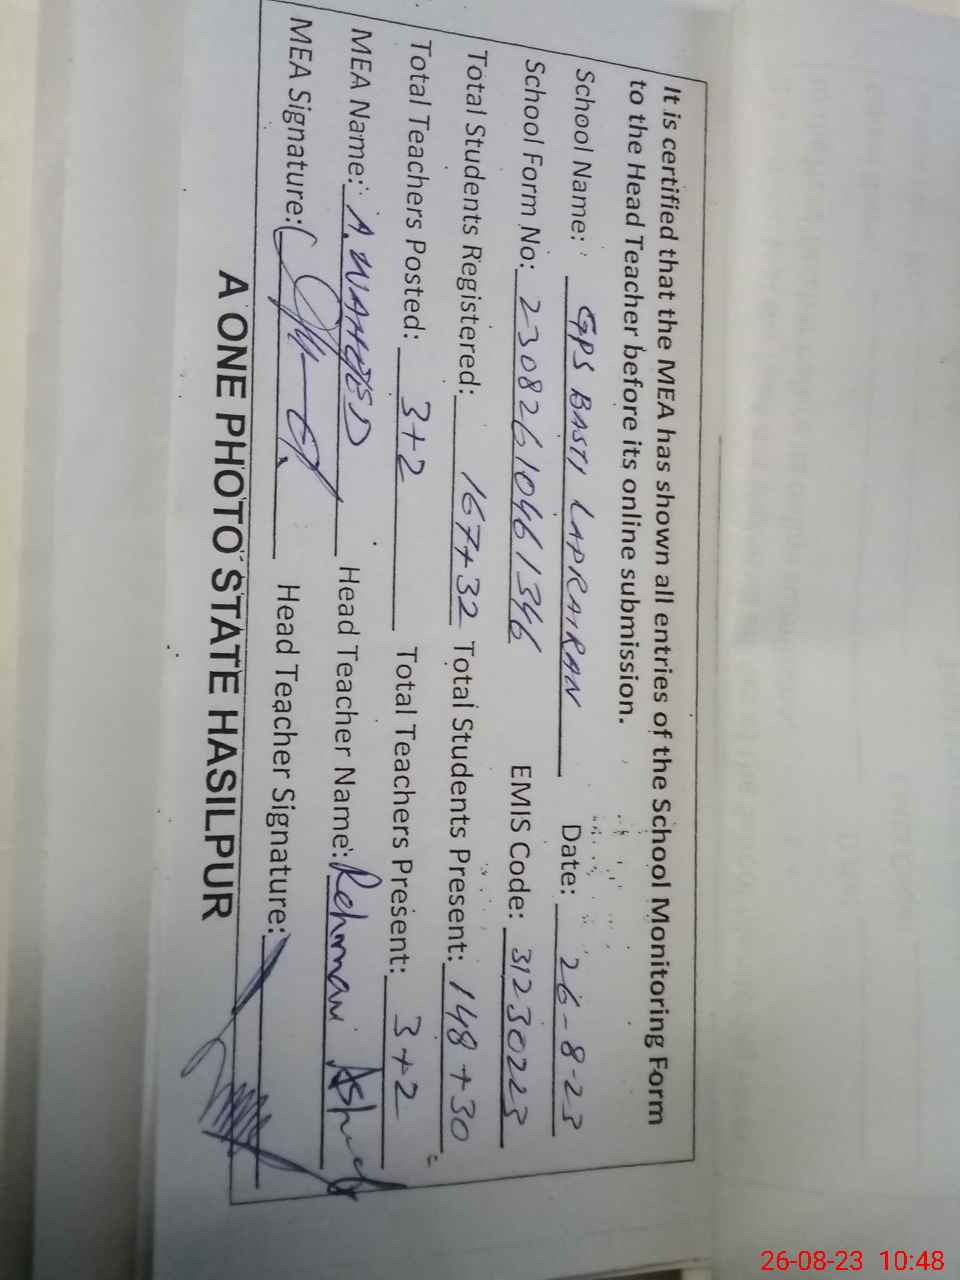 It is certified that the MEA has shown all entries of the School Monitoring Form
to the Head Teacher before its online submission.
School Name: GPS BASTI LAPRAIRAN Date: 26-8-23
School Form No: 23082610461346 EMIS Code: 31230223
Total Students Registered: 167+32 Total Students Present: 148+30
Total Teachers Posted: 3+2 Total Teachers Present: 3+2
MEA Name: A. WAHEED Head Teacher Name: Rehman
MEA Signature: Head Teacher Signature:
A ONE PHOTO STATE HASILPUR
26-08-23 10:48